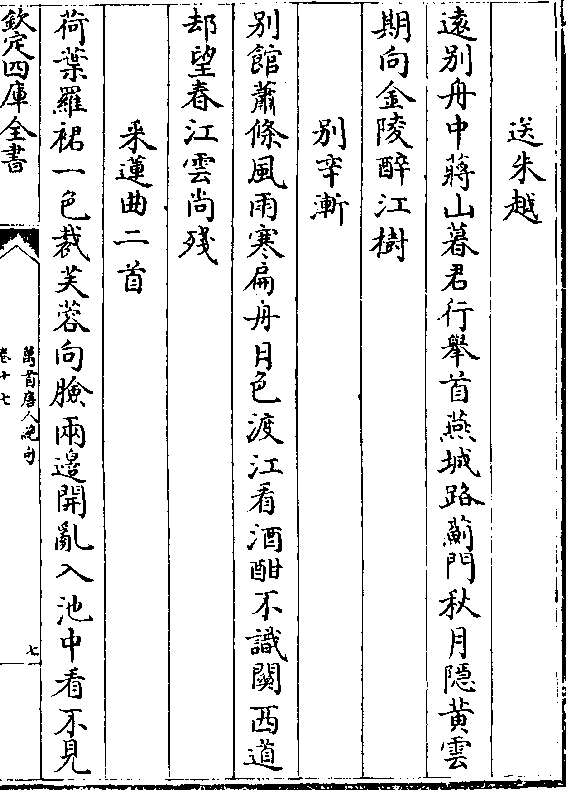 送朱越
遠別舟中蔣山暮君行舉首燕城路薊門秋月隱黃雲
期向金陵醉江樹
別辛漸
別館蕭條風雨寒扁舟月色渡江看酒酣不識關西道
却望春江雲尚殘
采蓮曲二首
荷葉羅裙一色裁芙蓉向臉兩邊開亂入池中看不見
欽定四庫全書
萬首唐人絶句
卷十七
七